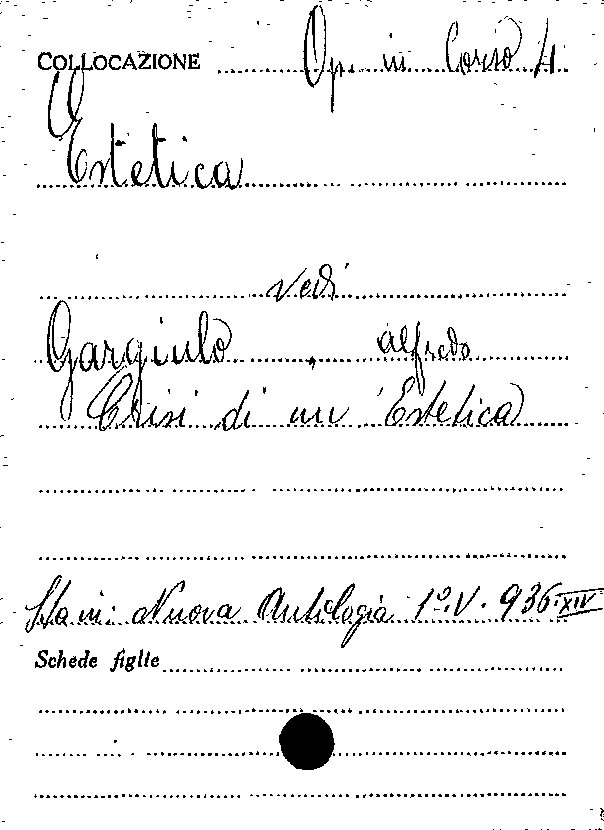 COLLOCAZIONE Op. in Corso 4
Estetica
vedi
Gargiulo, Alfredo
Crisi di un' Estetica
Sta in: Nuova Antologia 1º.V.936.XIV
Schede figlie